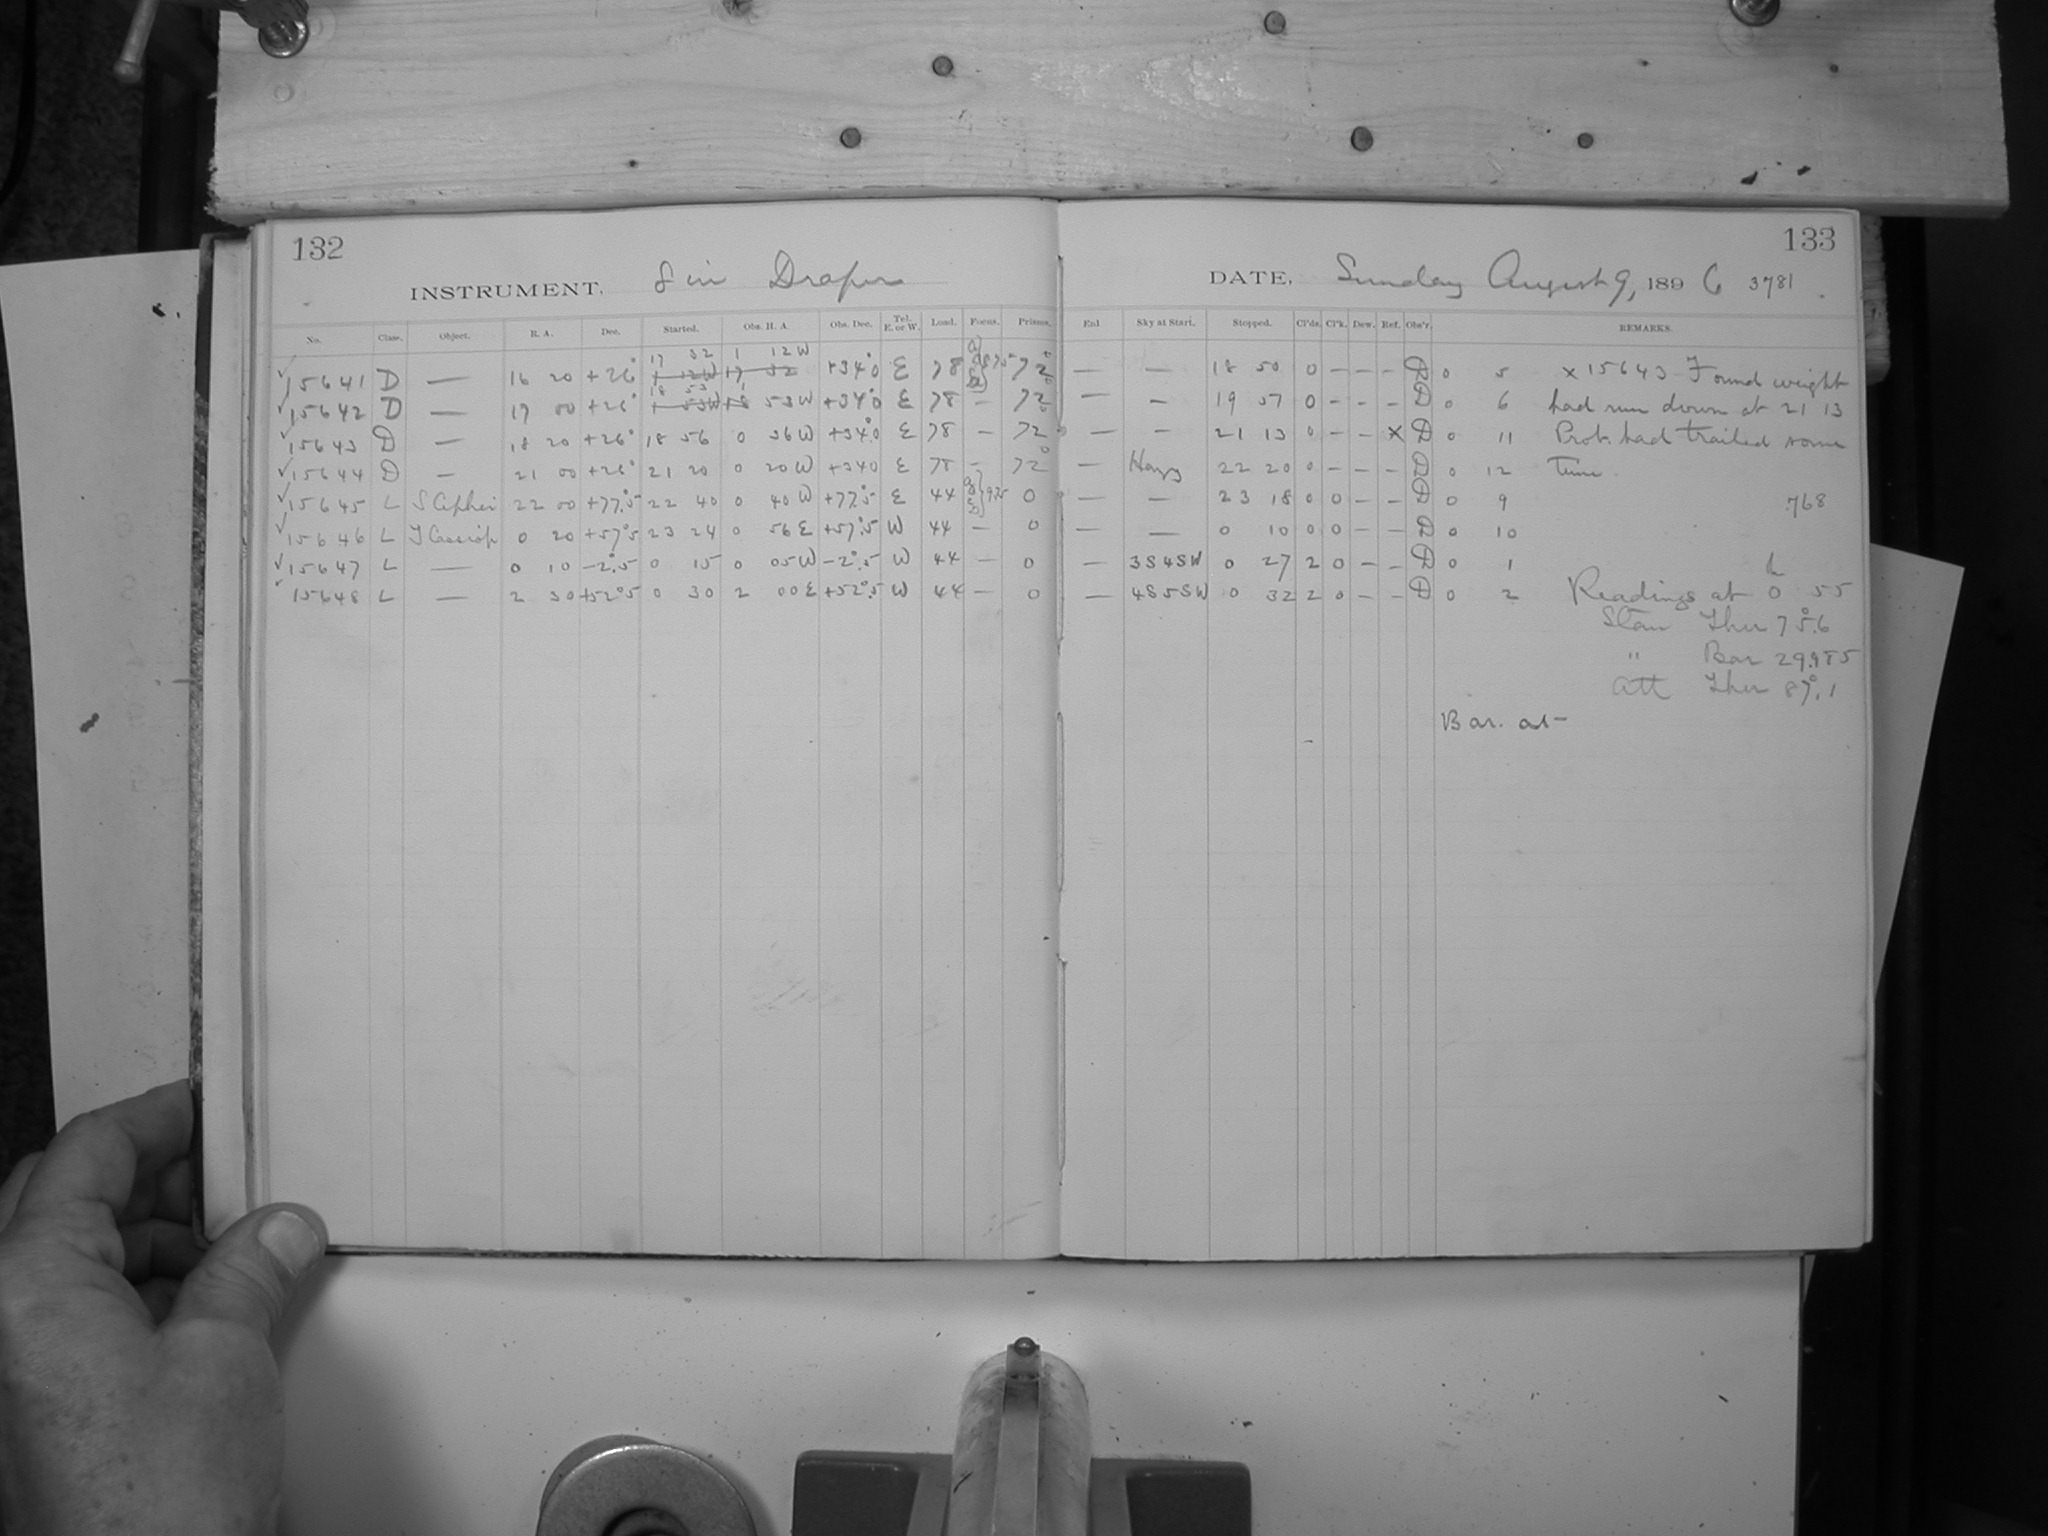 132
133
INSTRUMENT, 8 in Draper
DATE, Sunday August 9, 1896 3781
No. Class. Object. R. A. Dec. Started. Obs. H. A. Obs. Dec. Tel. E. or W. Load. Focus. Prisms. Enl Sky at Start. Stopped. Cl'ds. Cl'k. Dew. Ref. Obs'r. REMARKS.
✓15641 D — 16 20 +26° 17 32 1 12W +34°.0 E 78 72° — — 18 50 0 - - - D 0 5 x 15643 Found weight
✓15642 D — 17 00 +26° 18 53 1 53W +34°.0 E 78 — 72° — — 19 57 0 - - - D 0 6 had run down at 21 13
✓15643 D — 18 20 +26° 18 56 0 36W +34°.0 E 78 — 72 — — 21 13 0 - - X D 0 11 Prob. had trailed some
✓15644 D — 21 00 +26° 21 20 0 20W +34.0 E 78 — 72° — Hazy 22 20 0 - - - D 0 12 time.
✓15645 L S Cephei 22 00 +77°.5 22 40 0 40W +77°.5 E 44 0 — — 23 18 0 0 - - D 0 9 .768
✓15646 L T Cassiop 0 20 +57°.5 23 24 0 56E +57°.5 W 44 — 0 — — 0 10 0 0 - - D 0 10
✓15647 L — 0 10 -2°.5 0 15 0 05W -2°.5 W 44 — 0 — 3S4SW 0 27 2 0 - - D 0 1
✓15648 L — 2 30 +52°.5 0 30 2 00E +52°.5 W 44 — 0 — 4S5SW 0 32 2 0 - - D 0 2 Readings at 0h 55
Stan Ther 75°.6
" Bar 29.985
Att Ther 87°.1
Bar. at —